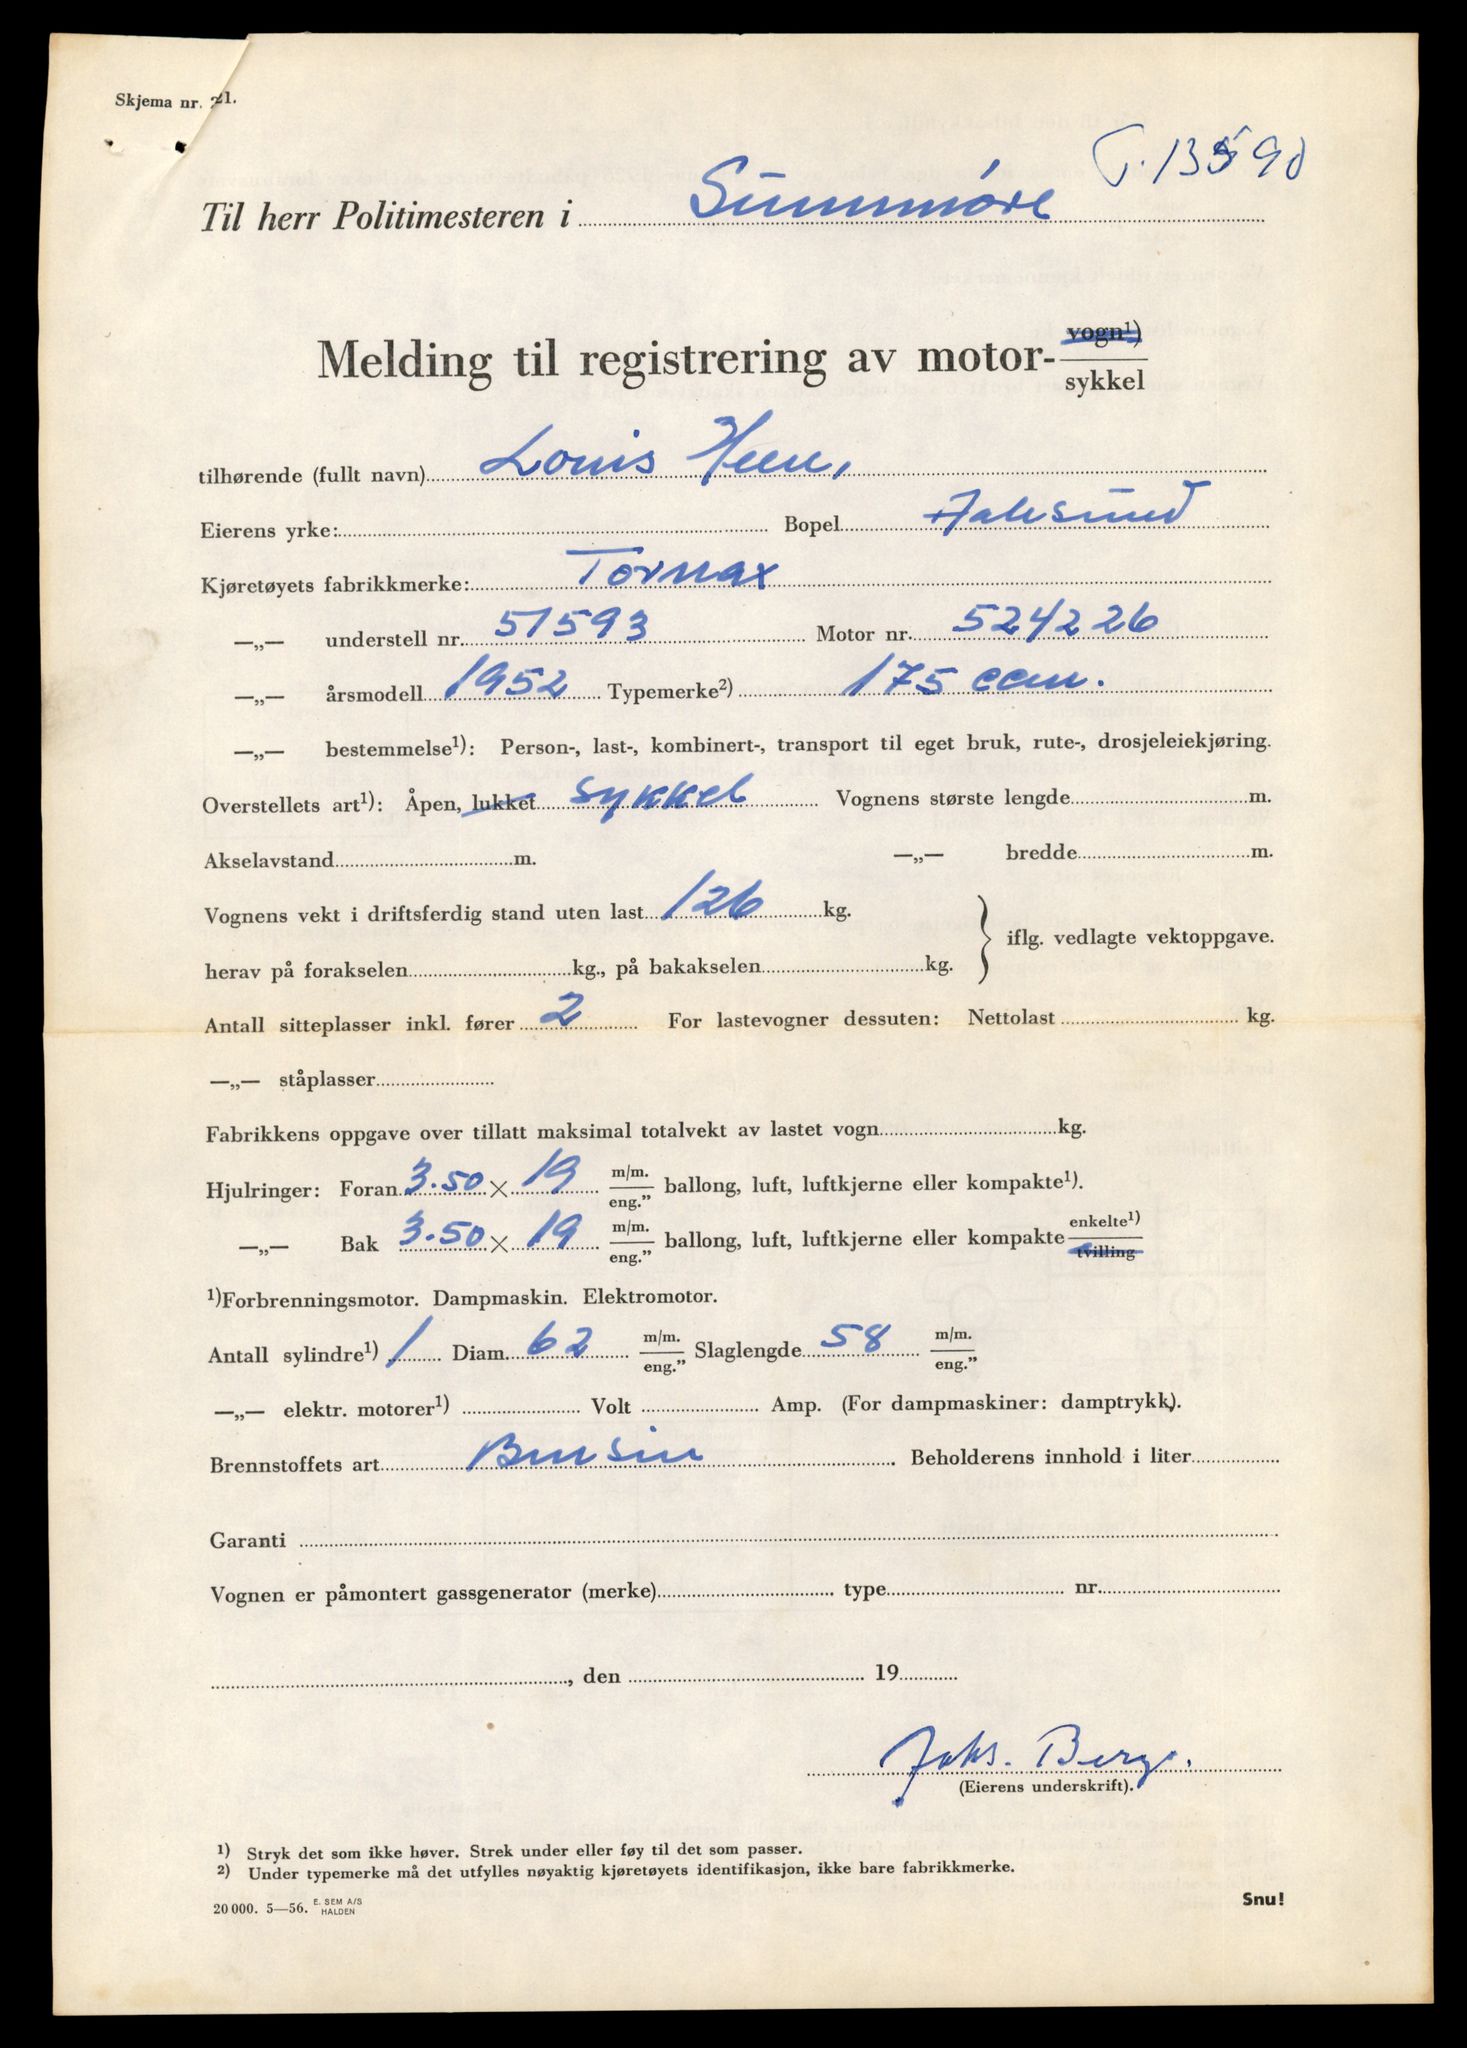 Skjema nr. 21.
T. 13590
Til herr Politimesteren i Sunnmøre
Melding til registrering av motor- vogn¹)
sykkel
tilhørende (fullt navn) Louis Heen,
Eierens yrke: Bopel Aalesund
Kjøretøyets fabrikkmerke: Tornax
—„— understell nr. 51593 Motor nr. 524226
—„— årsmodell 1952 Typemerke²) 175 ccm.
—„— bestemmelse¹): Person-, last-, kombinert-, transport til eget bruk, rute-, drosjeleiekjøring.
Overstellets art¹): Åpen, lukket sykkel Vognens største lengde m.
Akselavstand m. —„— bredde m.
Vognens vekt i driftsferdig stand uten last 126 kg.
iflg. vedlagte vektoppgave.
herav på forakselen kg., på bakakselen kg.
Antall sitteplasser inkl. fører 2 For lastevogner dessuten: Nettolast kg.
—„— ståplasser
Fabrikkens oppgave over tillatt maksimal totalvekt av lastet vogn kg.
Hjulringer: Foran 3.50 × 19 m/m. eng.” ballong, luft, luftkjerne eller kompakte¹).
—„— Bak 3.50 × 19 m/m. eng.” ballong, luft, luftkjerne eller kompakte enkelte¹) tvilling
¹)Forbrenningsmotor. Dampmaskin. Elektromotor.
Antall sylindre¹) 1 Diam. 62 m/m. eng.” Slaglengde 58 m/m. eng.”
—„— elektr. motorer¹) Volt Amp. (For dampmaskiner: damptrykk).
Brennstoffets art Bensin Beholderens innhold i liter
Garanti
Vognen er påmontert gassgenerator (merke) type nr.
, den 19
Johs. Berge.
(Eierens underskrift).
¹) Stryk det som ikke høver. Strek under eller føy til det som passer.
²) Under typemerke må det utfylles nøyaktig kjøretøyets identifikasjon, ikke bare fabrikkmerke.
20 000. 5—56. E. SEM A/S HALDEN
Snu!